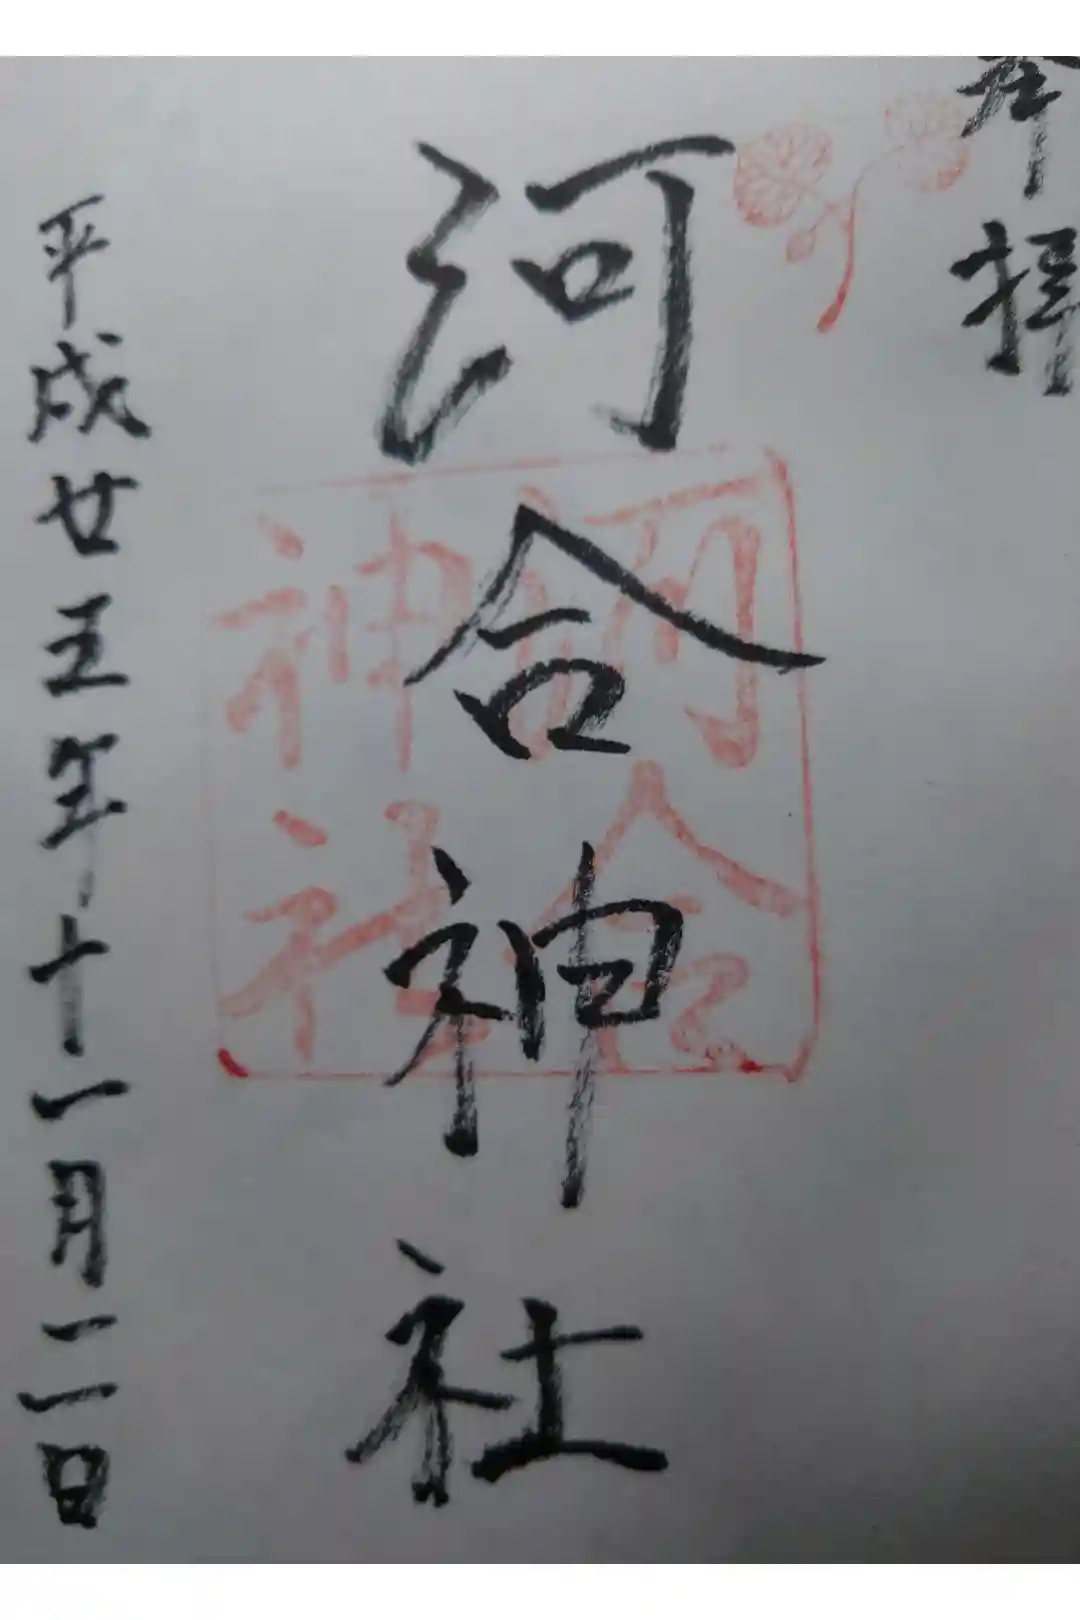 奉拝
河合神社
河合
神社
平成廿五年十一月二日